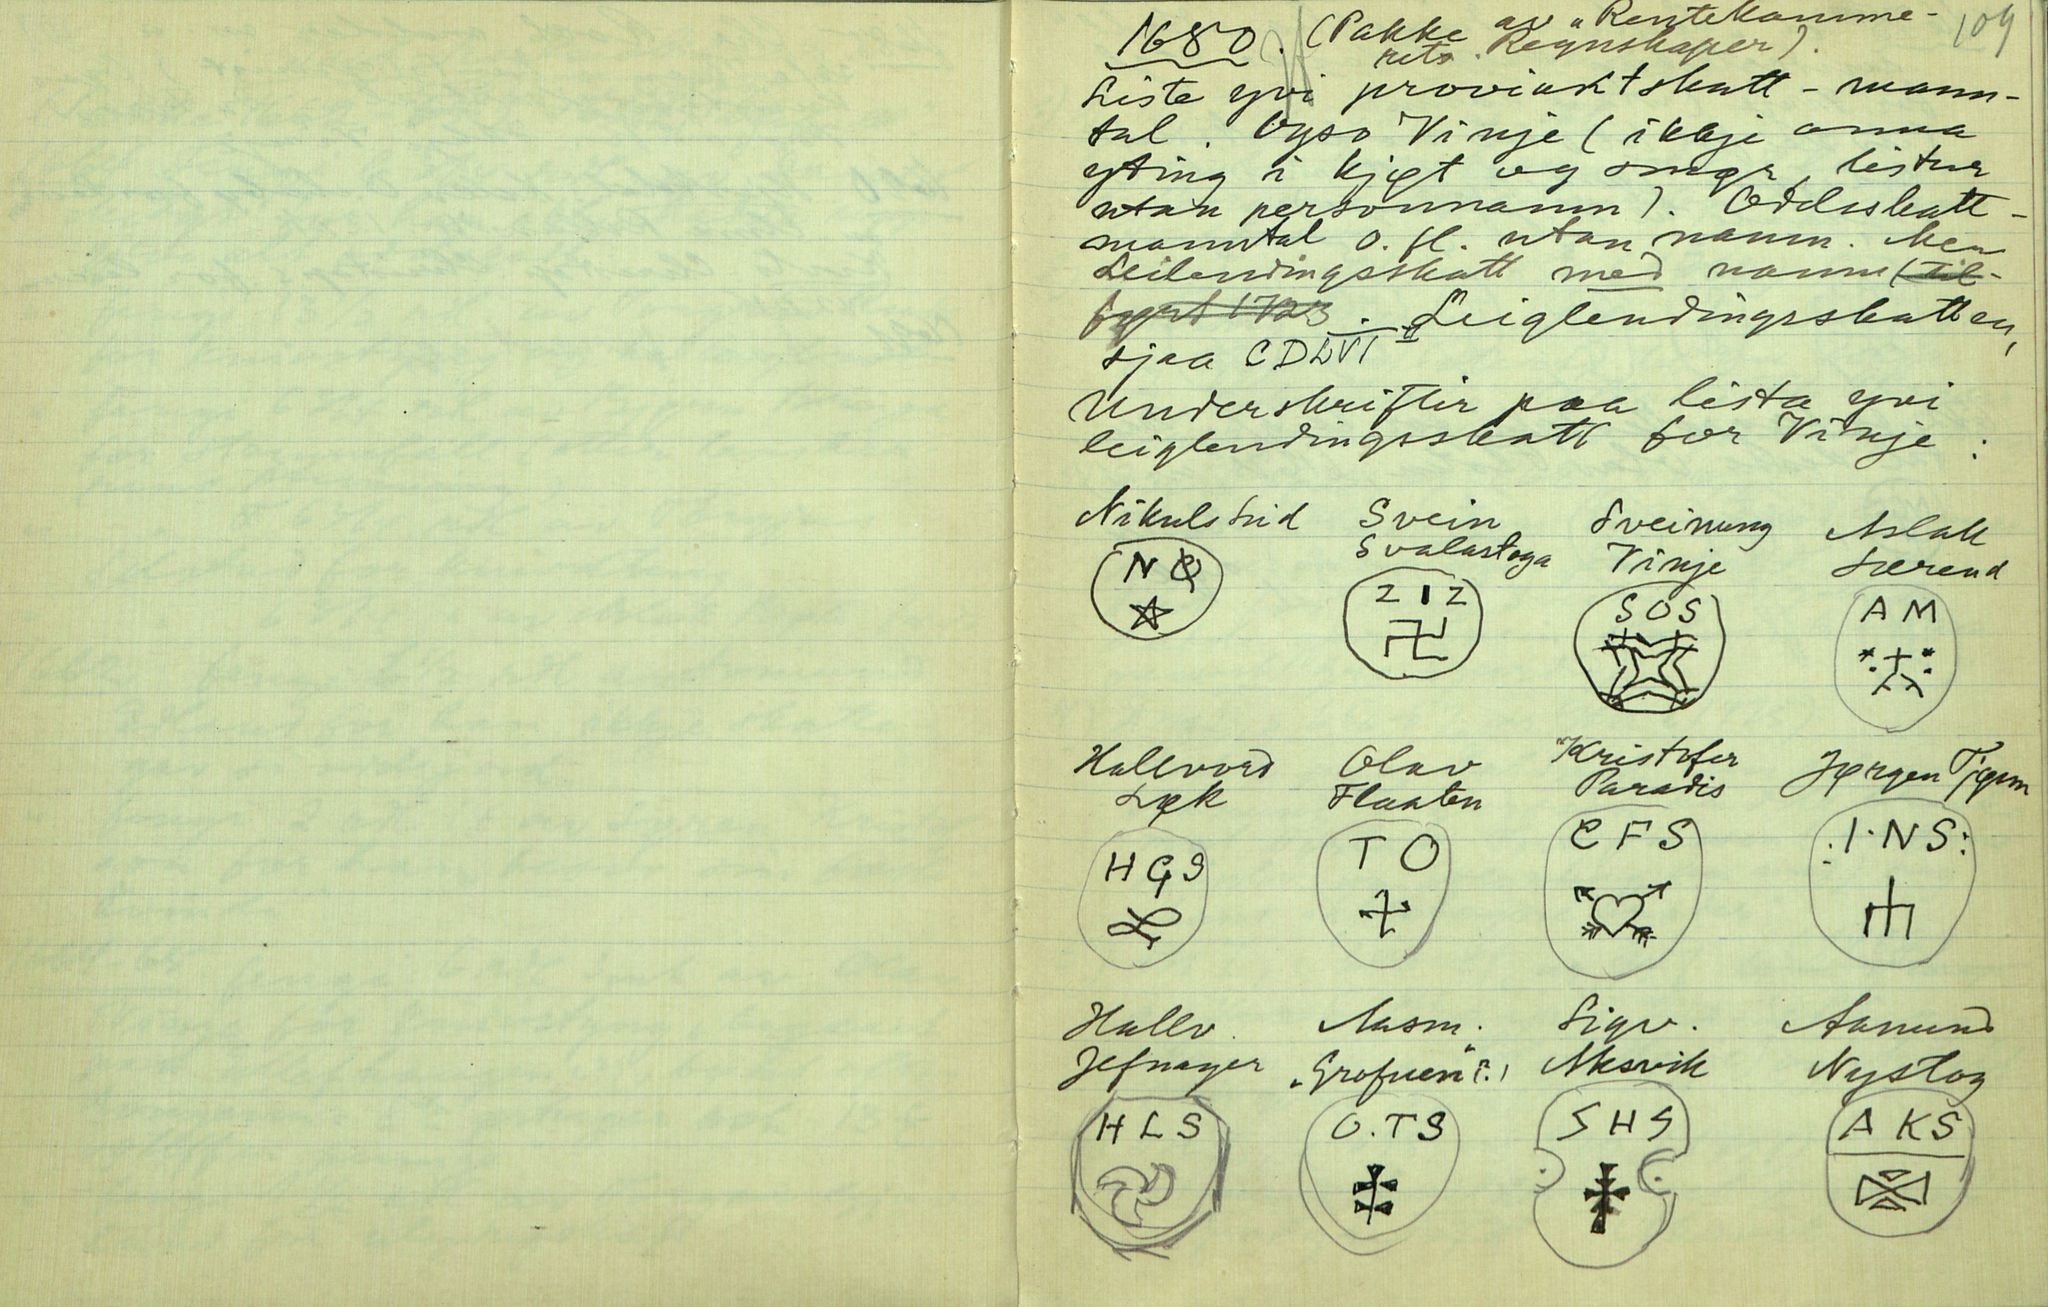 109
1680. (Pakke av "Rentekamme-
rets Regnskaper).
Liste yvi proviantskatt-mann-
tal. Ogso Vinje (ikkje anna
yting i kjøt og smør, listur
utan personnamn). Odelsskatt-
manntal o. fl. utan namn. Men
Leilendingsskatt med namn (til-
1723. Leiglendingsskatten,
sjaa CDLVI II
Underskrifter paa lista yvi
leiglendingsskatt for Vinje:
Nikuls Lid
Svein
Svalastoga
Sveinung
Vinje
Aslak
Lærend
N
2 I 2
SOS
A M
Hallvord
Løk
Olav
Flaaten
"Kristofer
Paradis
Jørgen Tjønn
H G S
T O
C F S
:I·NS:
Hallv.
Jefnager
Aasm.
"Grofuen" (?)
Sigv.
Aksvik
Aamund
Nystog
H L S
O.T S
S H S
A K S